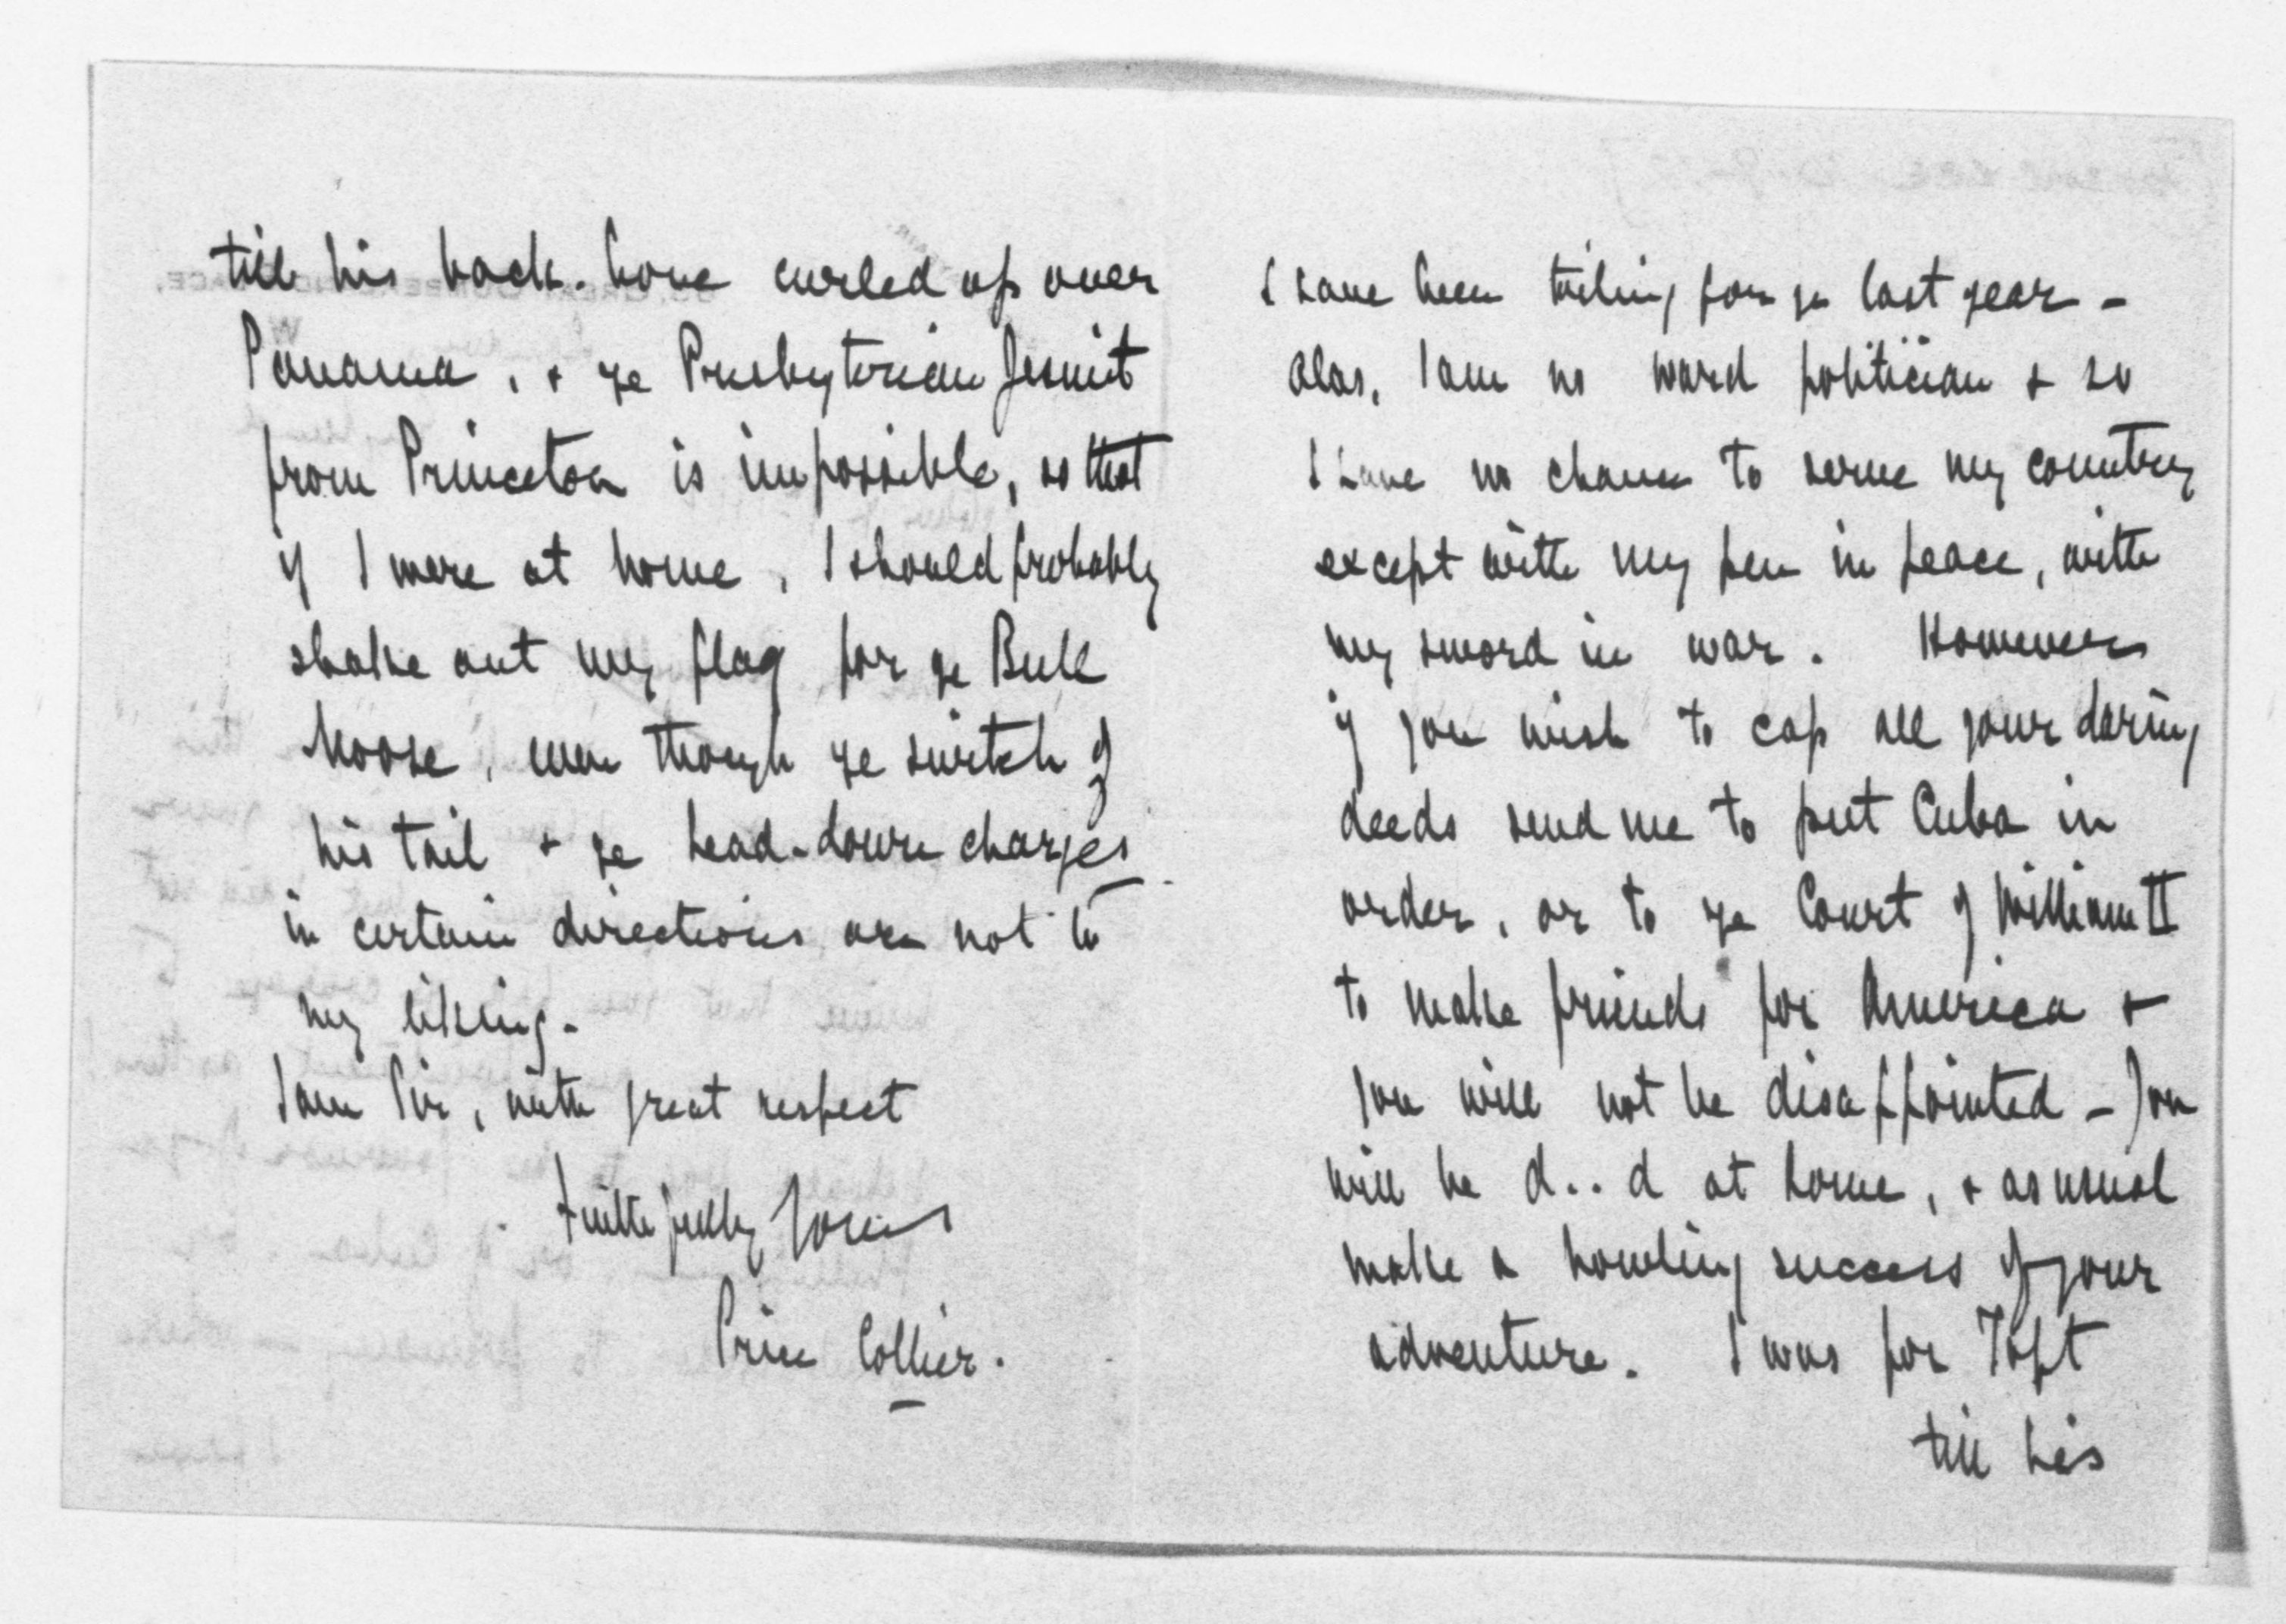 I have been toiling for ye last year –
Alas, I am no ward politician & so
I have no chance to serve my country
except with my pen in peace, with
my sword in war. However
if you wish to cap all your daring
deeds send me to put Cuba in
order, or to ye Court of William II
to make friends for America &
you will not be disappointed – You
will be d..d at home, & as usual
make a howling success of your
adventure. I was for Taft
till his
till his back-bone curled up over
Panama, & ye Presbyterian Jesuit
from Princeton is impossible, so that
if I were at home, I should probably
shake out my flag for ye Bull
Moose, even though ye switch of
his tail & ye head-down charges
in certain directions are not to
my liking.
I am Sir, with great respect
Faithfully Yours
Price Collier.